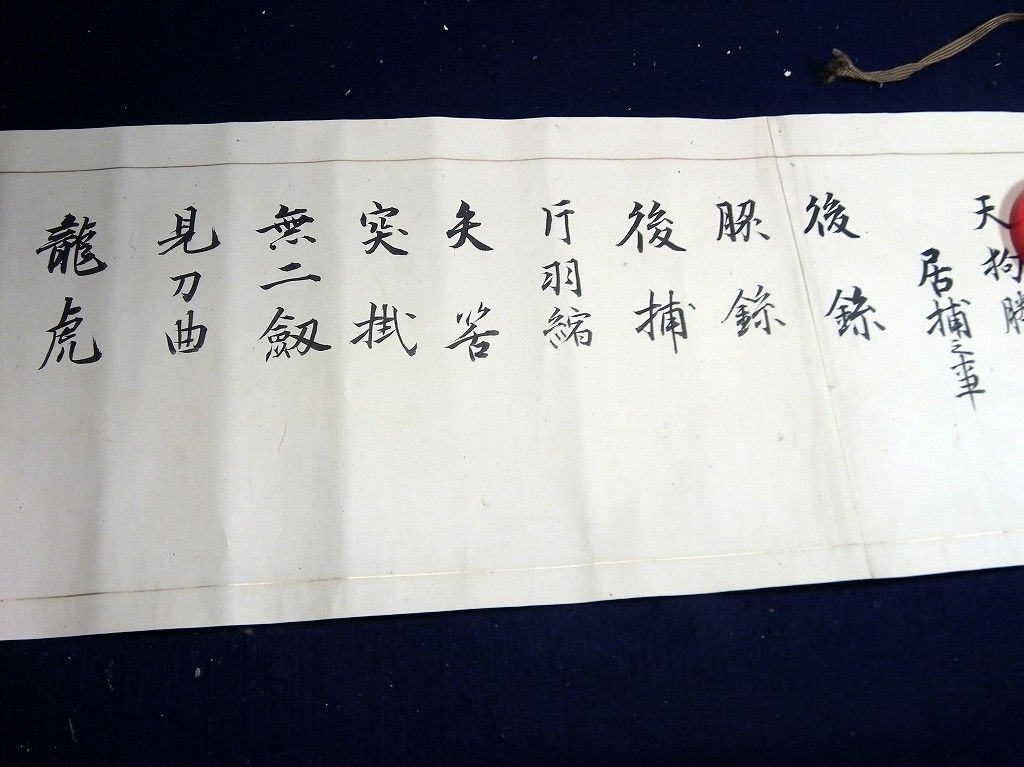 天狗勝
居捕之事
後緜
後捕
片羽縮
矢筈
突掛
無二劔
見刀曲
龍虎